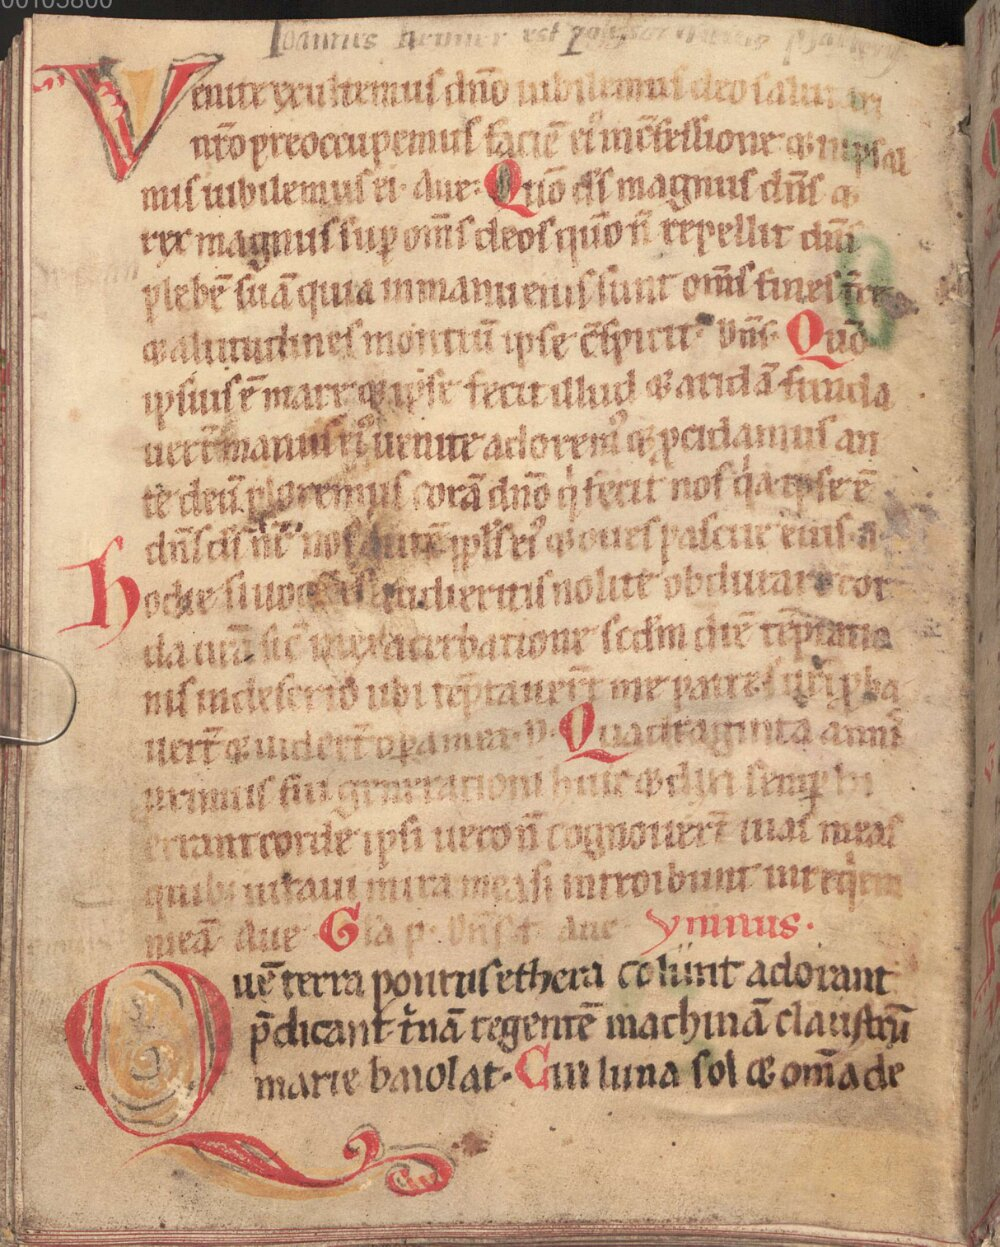 00105800
Ioannes est
Venite exultemus dño iubilemus deo salutari
nr̄o preoccupemus faciē ei᾿ in cōfessione ⁊ in psal
mis iubilemus ei· Aue· Quō d̄s magnus dn̄s ⁊
rex magnus sup om̄s deos quō n̄ repellit dn̄s
plebē suā quia in manu eius sunt om̄s fines t̄re
⁊ altitudines montiū ipse c̄spicit· Dn̄s· Quō
ipsius ē mare ⁊ ipse fecit illud ⁊ aridā funda
uert̄ manus ei᾿ uenite adorem᾿ ⁊ p̄cidamus an
te deū ploremus corā dn̄o q̇ fecit nos q̇a ipse ē
dn̄s d̄s nr̄ nos autē ipl̄s ei᾿ ⁊ oues pascue eius· a
hodie si uocē eius audieritis nolite obdurare cor
da ur̄a sic̄ in exacerbatione scdm̄ diē tēptatio
nis in deserto ubi tēptauert̄ me patres ur̄i p̄ba
uert̄ ⁊ uidert̄ opa mea· D· Quadraginta annis
primus fui generationi huic ⁊ dixi semp hi
errant corde ipsi uero n̄ cognouert̄ uias meas
quib᾿ iuraui in ira mea si introibunt in reqem
meā· Aue Gla p· Dn̄s t· Aue ymnus·
Quē terra pontus ethera colunt adorant
p̄dicant t̄nā regentē machinā claustrū
marie baiolat· Cui luna sol ⁊ om̄a de